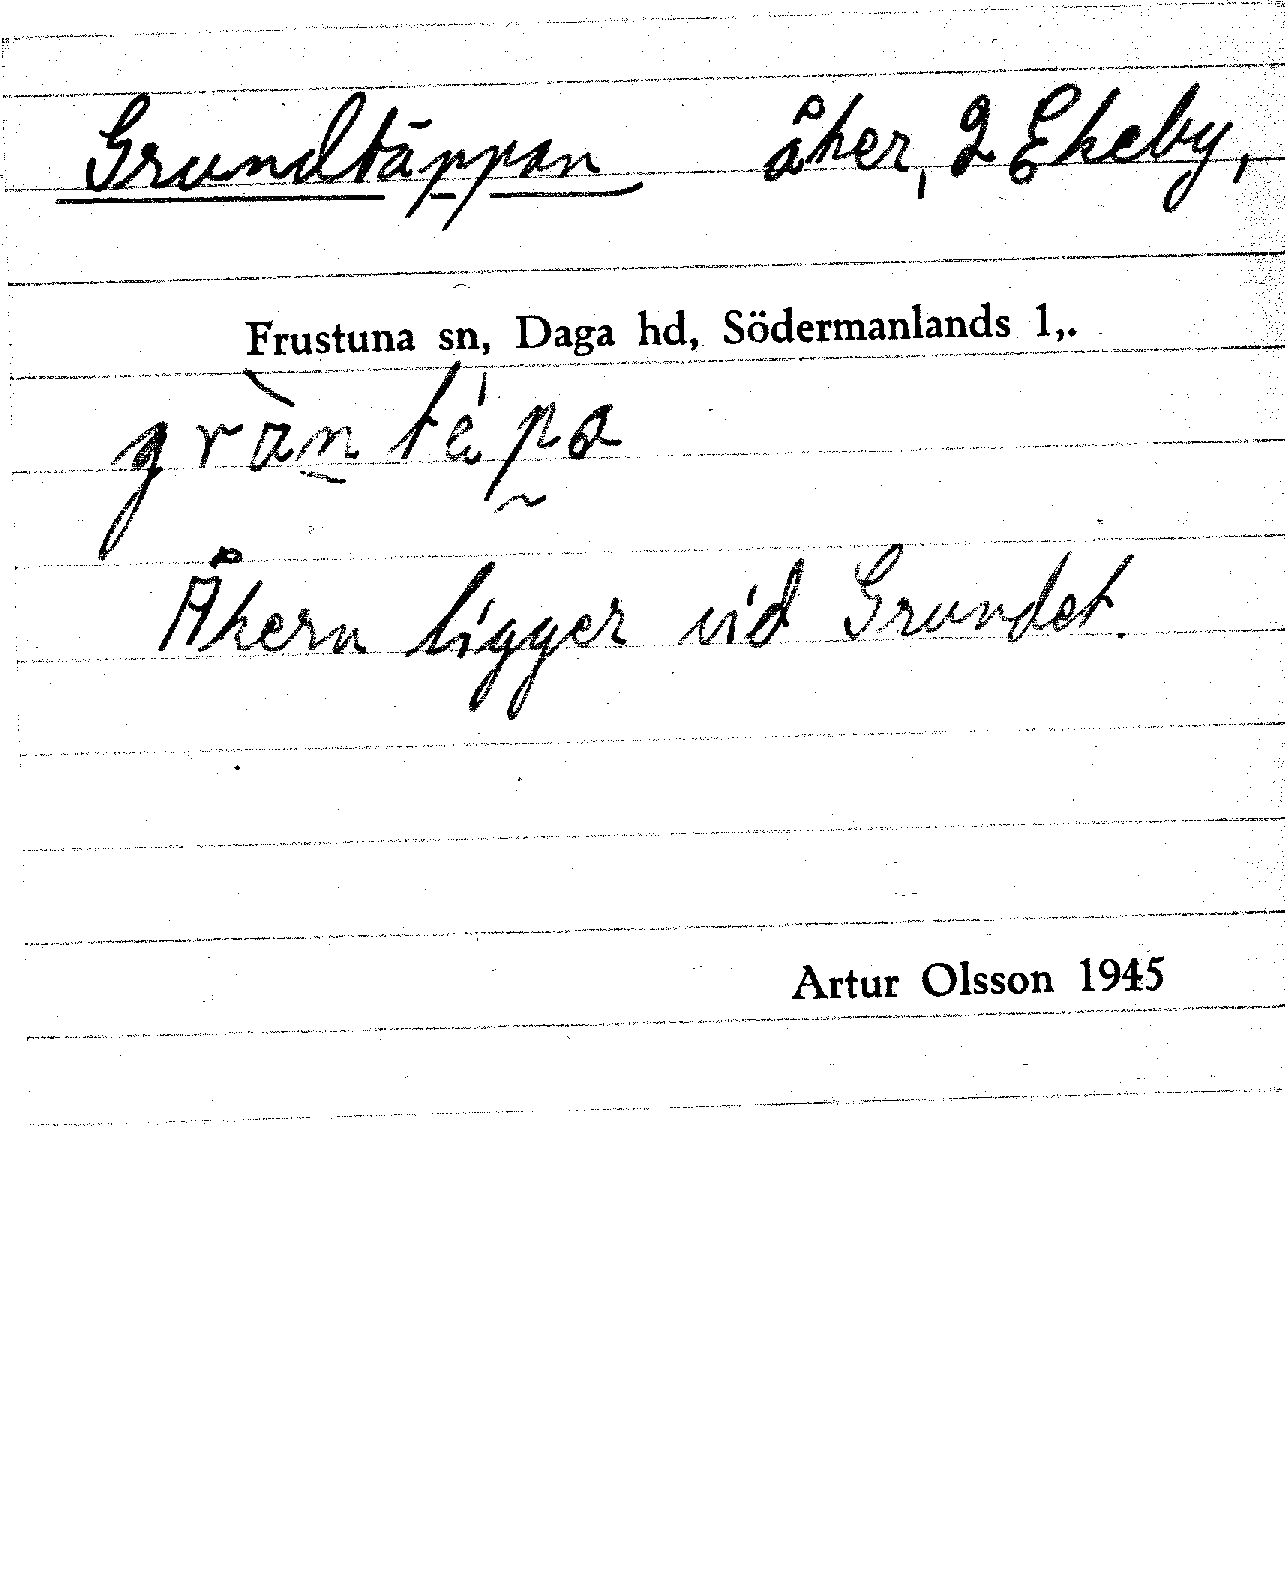 Grundtäppan åker, 2 Ekeby,
Frustuna sn, Daga hd, Södermanlands l,.
Åkern ligger vid Grundet.
Artur Olsson 1945